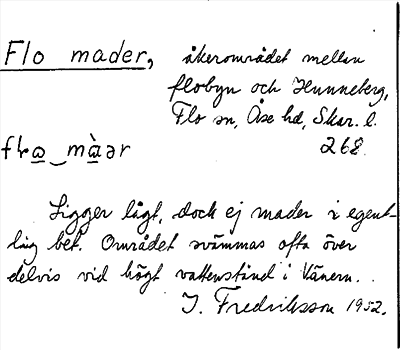 Flo mader, åkerområdet mellan
flobyn och Hunneberg,
Flo sn, Åse hd, Skar. l.
268.
Ligger lågt, dock ej mader i egent-
lig bet. Området svämmas ofta över
delvis vid högt vattenstånd i Vänern.
J. Fredriksson 1952.